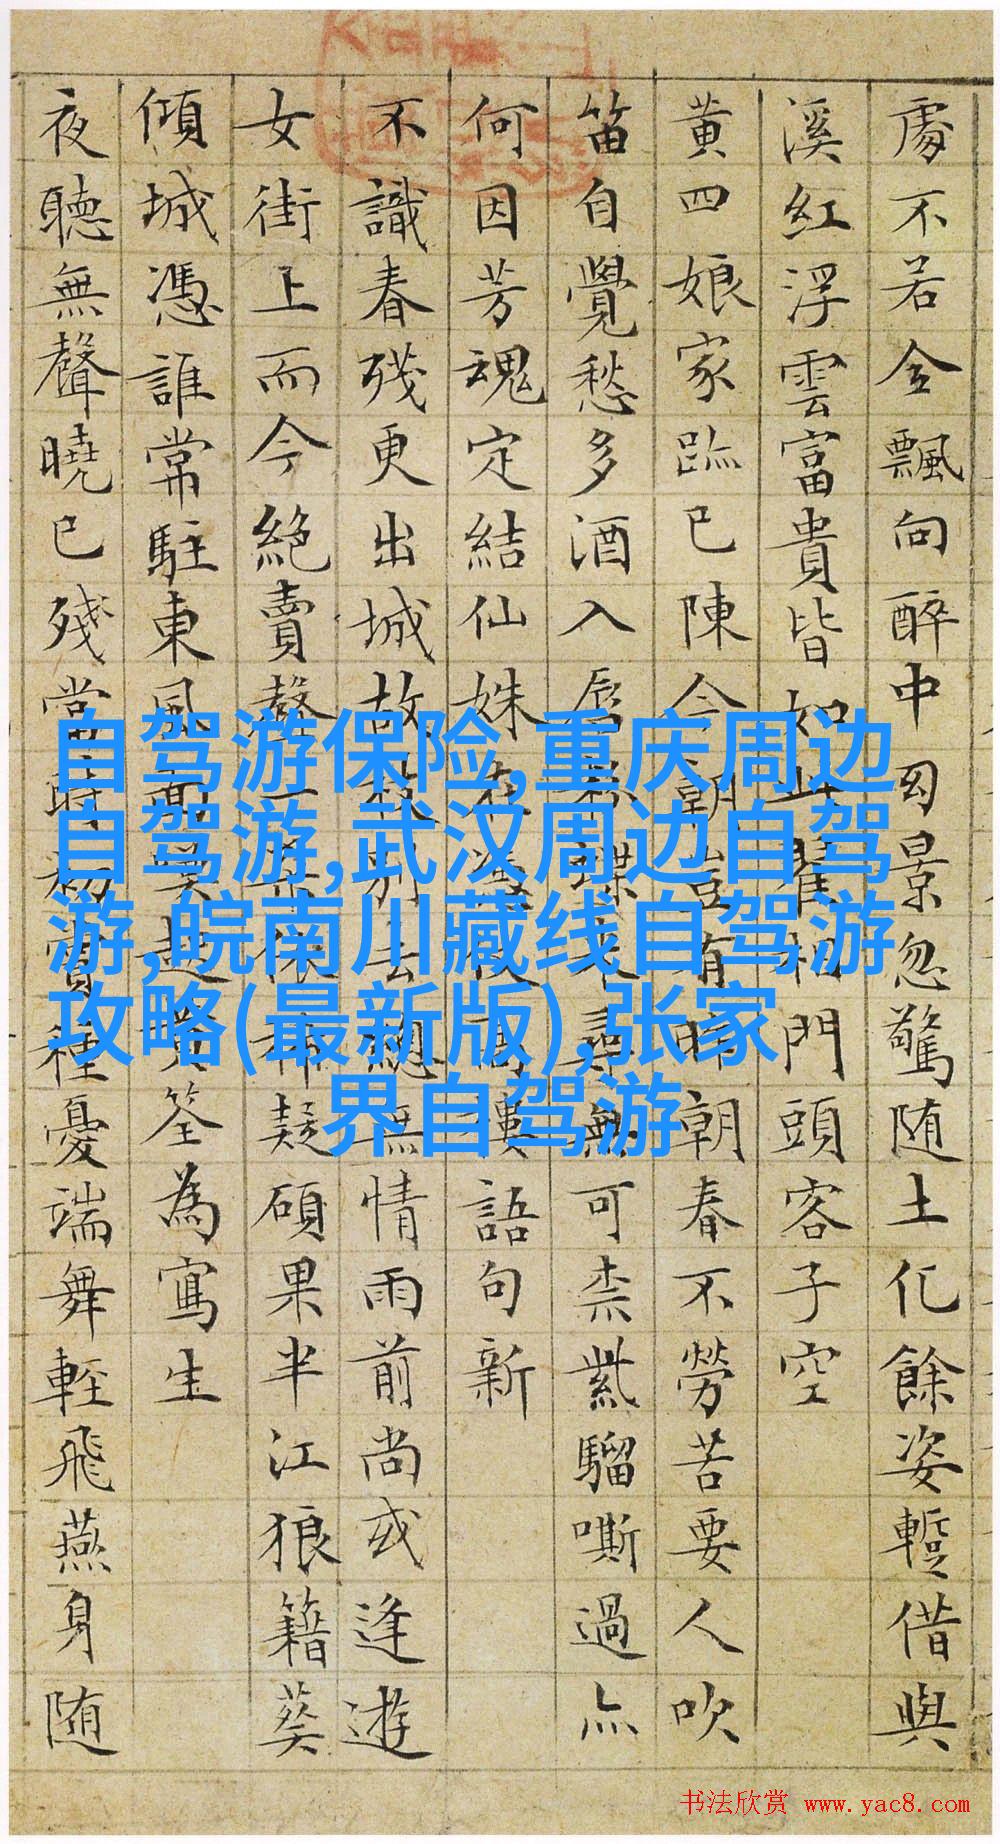 處不若金飄向醉中圂景忽驚随土化餘姿蹔借與
溪紅浮雲富貴皆如此 相門頭客子空
黄四娘家跡已陳今朝豈有時朝春不勞苦要人吹
笛自覺愁多酒入 蝶 尋無可柰紫騮嘶過亦
何因芳魂定結仙姝在 樓語句新
不識春残更出城故 别去總無情雨前尚或逢遊
女街上而今絶賣聲 疑碩果半江狼籍葵
傾城憑誰常駐東風面 黄筌為寫生
夜聽無聲曉已殘當時 賞種憂端舞輕飛燕身随
自驾游保险,重庆周边
自驾游,武汉周边自驾
游,皖南川藏线自驾游
攻略(最新版),张家
界自驾游
书法欣赏 www.yac8.com